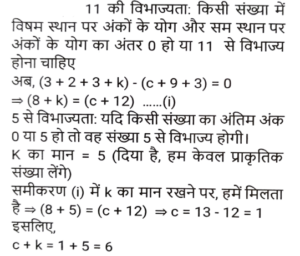 11 की विभाज्यता: किसी संख्या में
विषम स्थान पर अंकों के योग और सम स्थान पर
अंकों के योग का अंतर 0 हो या 11 से विभाज्य
होना चाहिए
अब, (3 + 2 + 3 + k) - (c + 9 + 3) = 0
⇒ (8 + k) = (c + 12) ......(i)
5 से विभाज्यता: यदि किसी संख्या का अंतिम अंक
0 या 5 हो तो वह संख्या 5 से विभाज्य होगी।
K का मान = 5 (दिया है, हम केवल प्राकृतिक
संख्या लेंगे)
समीकरण (i) में k का मान रखने पर, हमें मिलता
है ⇒ (8 + 5) = (c + 12) ⇒ c = 13 - 12 = 1
इसलिए,
c + k = 1 + 5 = 6